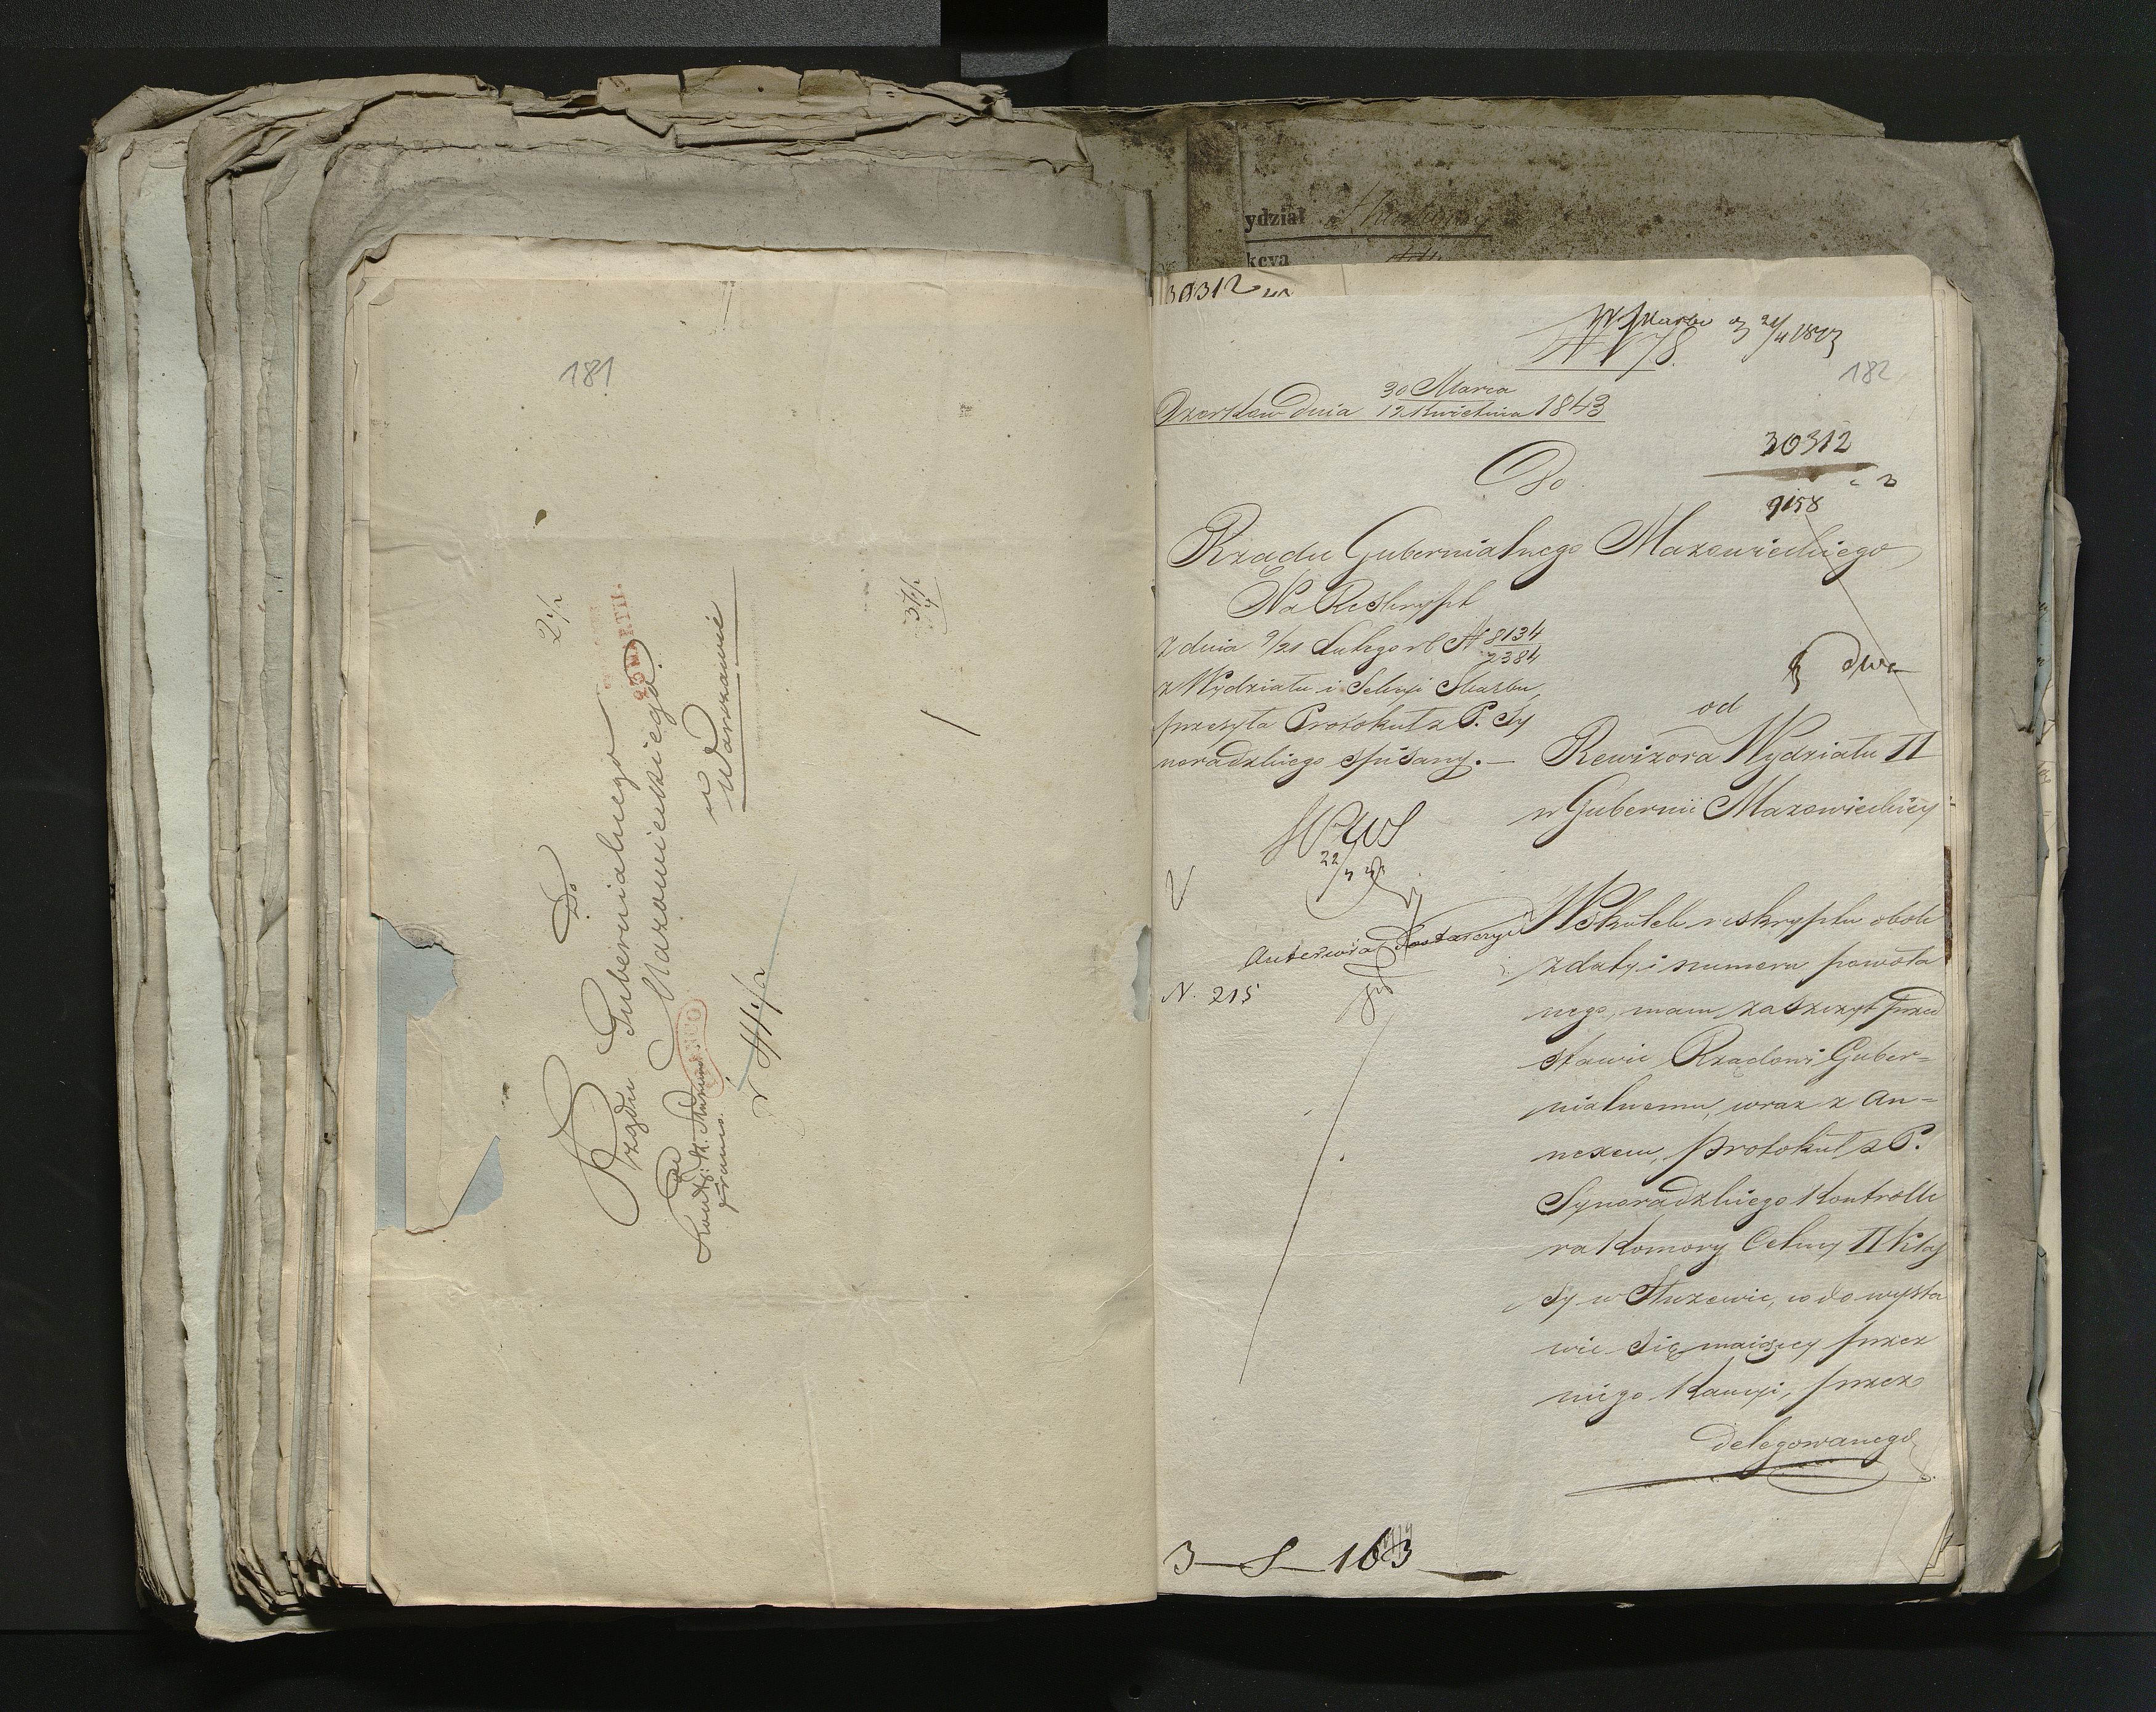 181
2 1/2
Do
Rządu Gubernialnego
Mazowieckiego
w
Warszawie
franco
37 1/2
4
ydział
kcya
30312
W. Skarbu
N 78.
182
dnia 30 Marca
12 Kwietnia 1843
30312
9158
Do
Rządu Gubernialnego Mazowieckiego
Na Reskrypt
z dnia 9/21 Lutego rb N 8134
2384
z Wydziału i Sekcyi Skarbu,
przesyła Protokuł z P. Sy
noradzkiego spisany. —
dwa
od
Rewizora Wydziału II
w Gubernii Mazowieckiey
22/4
N. 215
W skutek reskryptu obok
z daty i numeru powoła
nego, mam zaszczyt przed
stawić Rządowi Guber=
nialnemu, wraz z An=
nexem, protokuł z P.
Synoradzkiego Kontrolle
ra Komory Celney II Klas
sy w Służewie, co do wysta
wić się maiącey przez
niego Kaucyi, przez
delegowanego
3 — S — 163